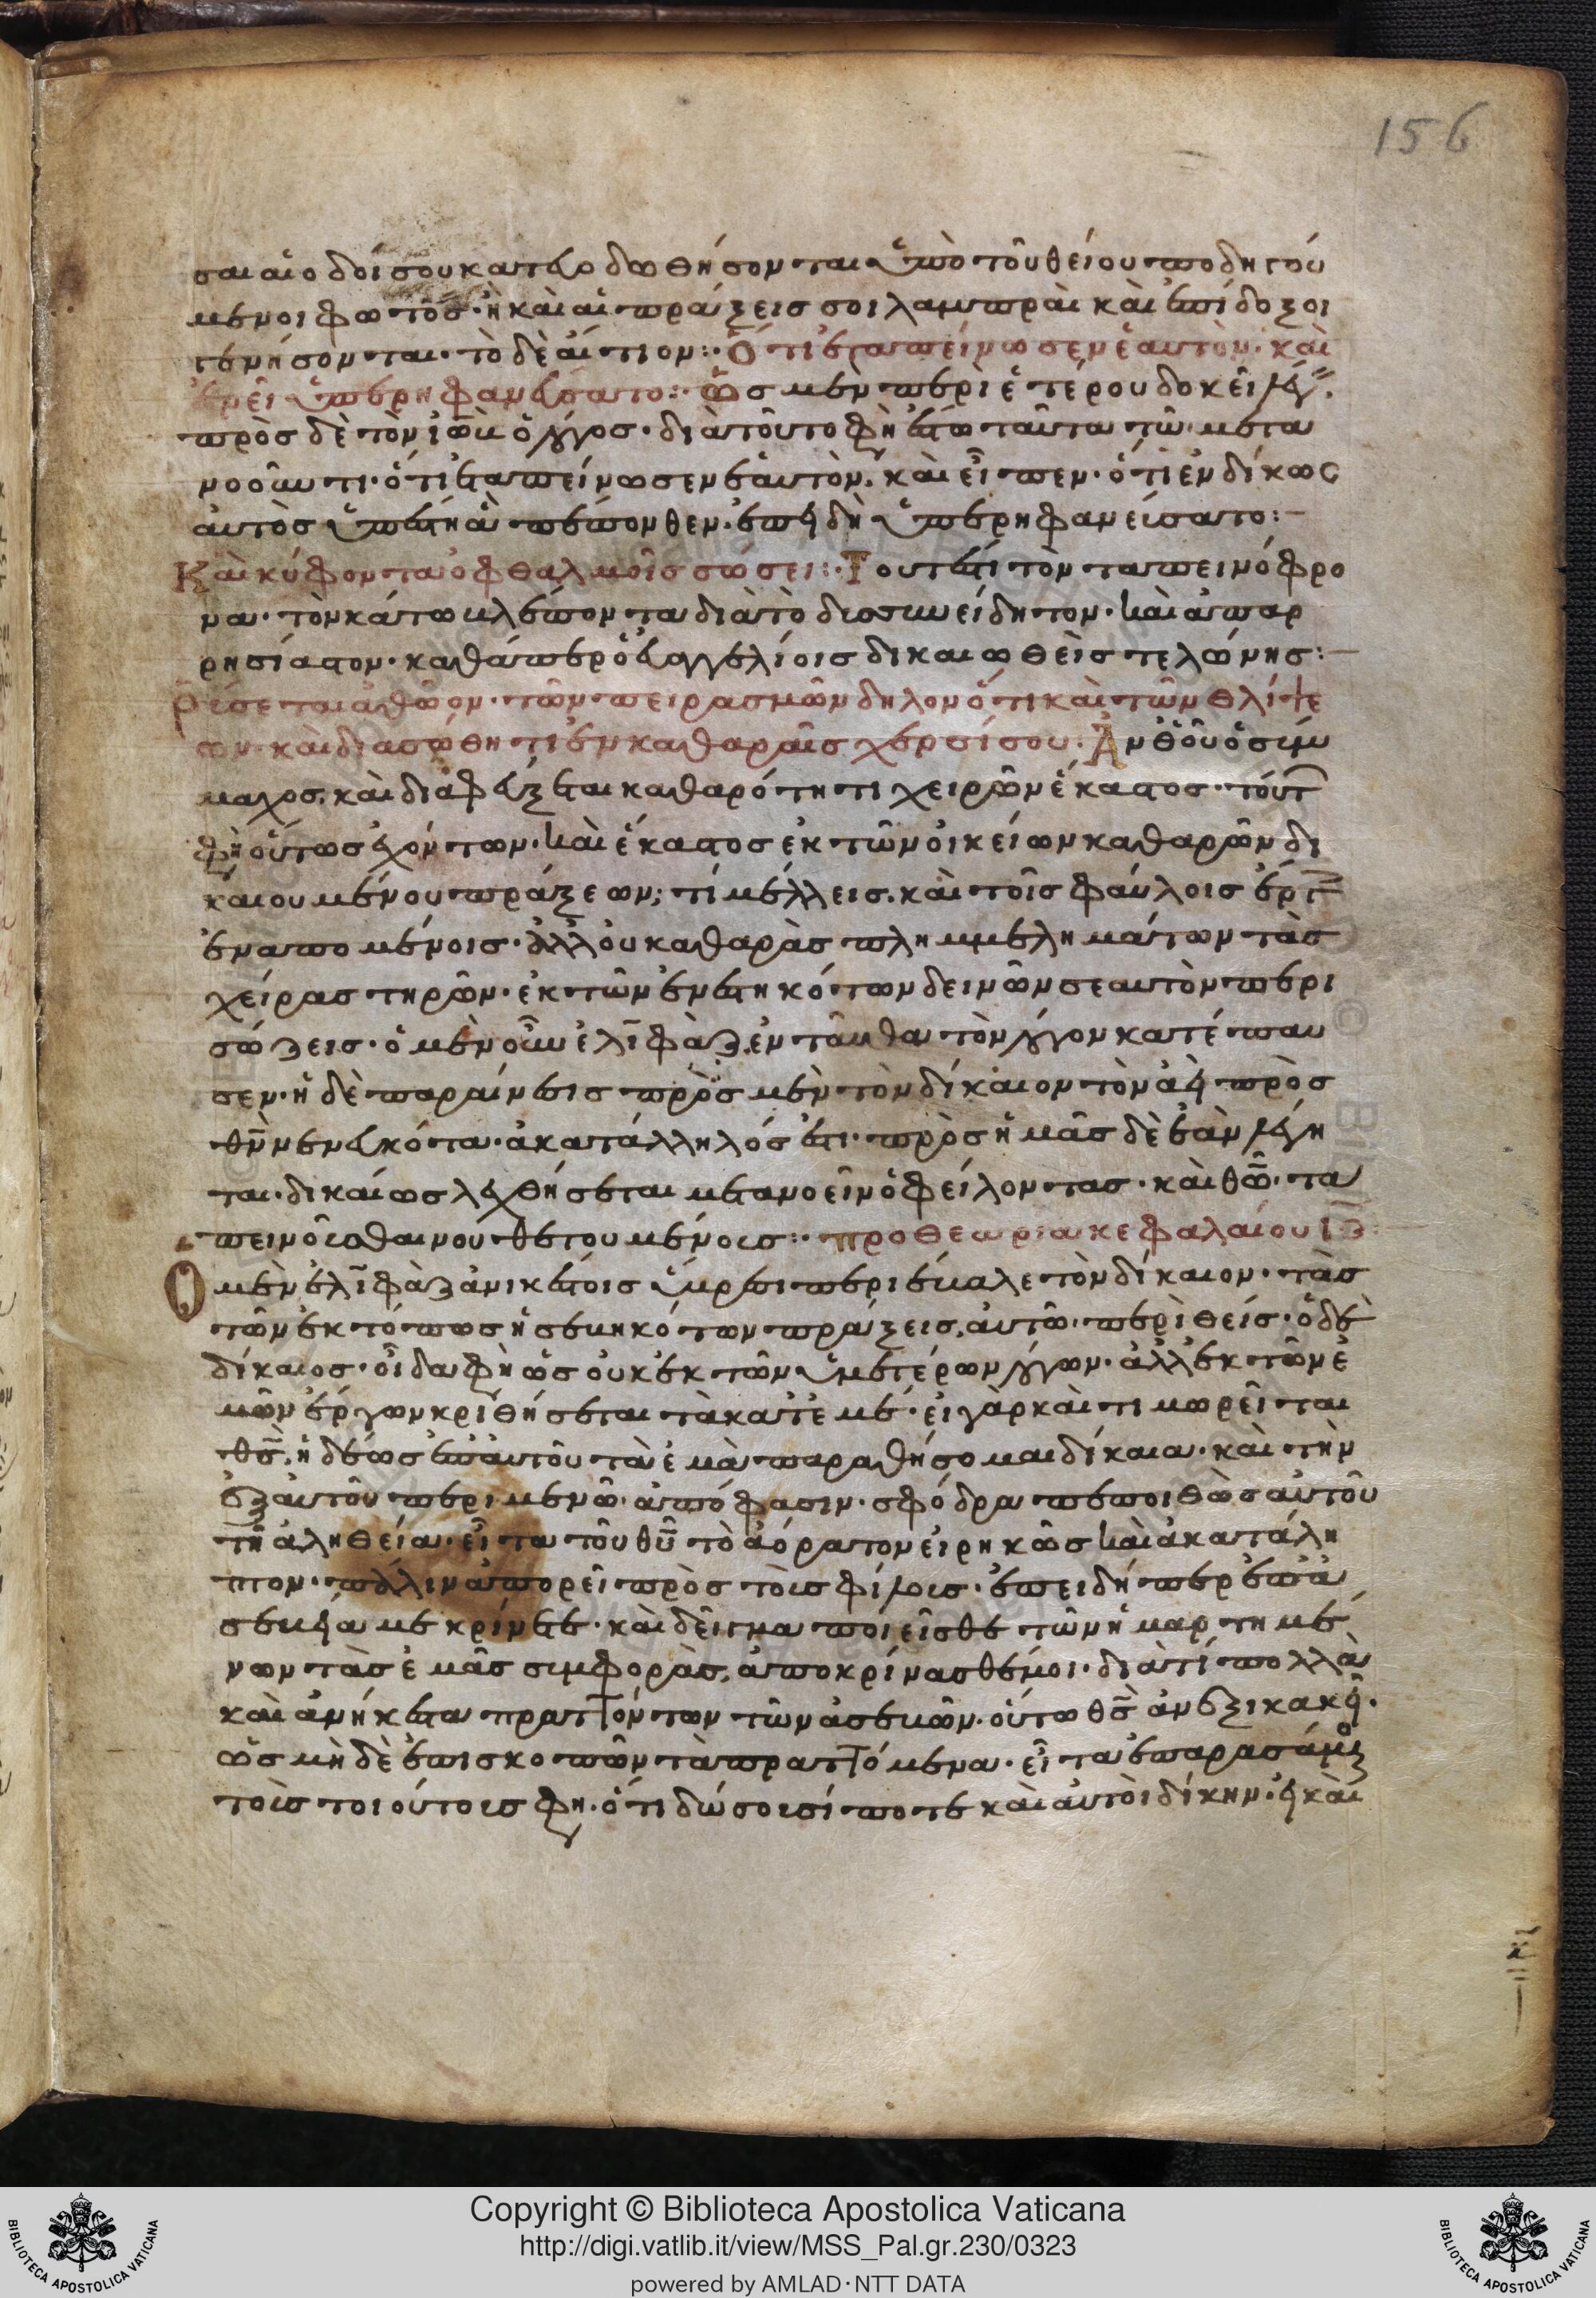 156
σαι αἱ ὁδοί σου κατευοδωθήσονται ὑπὸ τοῦ θείου ποδηγού
μενοι φωτός· ἢ καὶ αἱ πράξεις σοι λαμπραὶ καὶ ἐπίδοξοι
γενήσονται· τὸ δὲ αἴτιον:· Ὅτι ἐταπείνωσεν ἑαυτὸν· καὶ
ἐρεῖ ὑπερηφανεύσατο:· ὡς μὲν περὶ ἑτέρου δοκεῖ
πρὸς δὲ τὸν ἰὼβ ὁ λόγος· διὰ τοῦτο φὴ ἔσται ταῦτα τῶ μετα
νοοῦντι· ὅτι ἐταπείνωσεν ἑαυτὸν, καὶ εἶπεν· ὅτι ἐνδίκως
αὐτὸς ὑπέστη ἃ πέπονθεν· ἐπειδὴ ὑπερηφανείσατο:
Καὶ κύφοντα ὀφθαλμοῖς σώσει:· Τουτέστι τὸν ταπεινόφρο
να· τὸν κάτω βλέποντα διὰ τὸ δυσσυνείδητον· καὶ ἀπαρ
ρησίαστον· καθάπερ ὁ ἐν εὐαγγελίοις δικαιωθεὶς τελώνης:
Ῥύσεται ἀθῶον· τῶν πειρασμῶν δηλονότι καὶ τῶν θλίψε
ων· καὶ διασώθητι ἐν καθαραῖς χερσί σου· Ἀνθ' οὗ ὁ σύμ
μαχος, καὶ διαφεύξεται καθαρότητι χειρῶν ἕκαστος· τούτ
φὴ οὕτως ἐχόντων· καὶ ἕκαστος ἐκ τῶν οἰκείων καθαρῶν δι
καιουμένου πράξεων; τί μέλλεις, καὶ τοῖς φαύλοις ἔργ
ἐναπομένοις· ἀλλ' οὐ καθαρὰς πλημμελημάτων τὰς
χεῖρας τηρῶν· ἐκ τῶν ἐνεστηκότων δεινῶν σεαυτὸν περι
σώζεις· ὁ μὲν οὖν ἐλιφὰζ ἐνταῦθα τὸν λόγον κατέπαυ
σεν· ἡ δὲ παραίνεσις πρὸς μὲν τὸν δίκαιον τὸν ἀεὶ πρὸς
θν νενευκότα· ἀκατάλληλός ἐστι· πρὸς ἡμᾶς δὲ ἐὰν
ται· δικαίως λεχθήσεται μετανοεῖν ὀφείλοντας· καὶ θω τα
πεινοῦσθαι νουθετουμένοις:· προθεωρια κεφαλαίου ΙΖ
Ὁ μὲν ἐλιφὰζ ἀνικέστοις ὕβρεσι περιέβαλε τὸν δίκαιον· τὰς
τῶν ἐκτόπως ἠσεβηκότων πράξεις, αὐτῶ περιθείς· ὁ δὲ
δίκαιος· οἶδα φὴ ὡς οὐκ ἐκ τῶν ὑμετέρων λόγων· ἀλλ' ἐκ τῶν ἐ
μῶν ἔργων κριθήσεται τὰ κατ' ἐμέ· εἰ γὰρ καὶ τιμωρεῖται
θς, ἡδέως ἐπ' αὐτοῦ τὰ ἐμὰ παραθήσομαι δίκαια· καὶ τὴν
ἐξ αὐτοῦ περιμενῶ ἀπόφασιν· σφόδρα πεποιθὼς αὐτοῦ
τῆ ἀληθεία· εἶτα τοῦ θυ τὸ ἀόρατον εἰρηκὼς καὶ ἀκατάλη
πτον· πάλιν ἀπορεῖ πρὸς τοὺς φίλους· ἐπειδήπερ ἐπ' ἀ
σεβεία με κρίνετε· καὶ δεῖγμα ποιεῖσθε τῶν ἡμαρτημέ
νων τὰς ἐμὰς συμφοράς, ἀποκρίνασθέ μοι· διὰ τί πολλὰ
καὶ ἀνήκεστα πραττόντων τῶν ἀσεβῶν· οὕτω θς ἀνεξικακεῖ·
ὡς μὴ δὲ ἐπισκοπῶν τὰ πραττόμενα· εἶτα ἐπαρασάμενος
τοῖς τοιούτοις φη· ὅτι δώσουσί ποτε καὶ αὐτοὶ δίκην· εἰ καὶ
Copyright © Biblioteca Apostolica Vaticana
http://digi.vatlib.it/view/MSS_Pal.gr.230/0323
powered by AMLAD·NTT DATA
BIBLIOTECA APOSTOLICA VATICANA
BIBLIOTECA APOSTOLICA VATICANA